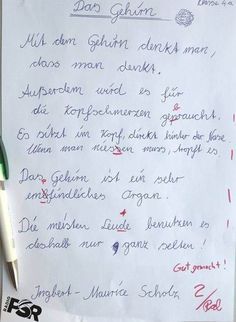 Klasse 4a
Das Gehirn
Mit dem Gehirn denkt man,
dass man denkt.
Außerdem wird es für
die Kopfschmerzen gebraucht.
Es sitzt im Kopf, direkt hinter der Nase
Wenn man niessen muss, tropft es.
Das Gehirn ist ein sehr
empfindliches Organ.
Die meisten Leude benutzen es
deshalb nur ganz selten!
Gut gemacht!
Ingbert-Maurice Scholz
2
RADIO
FSR